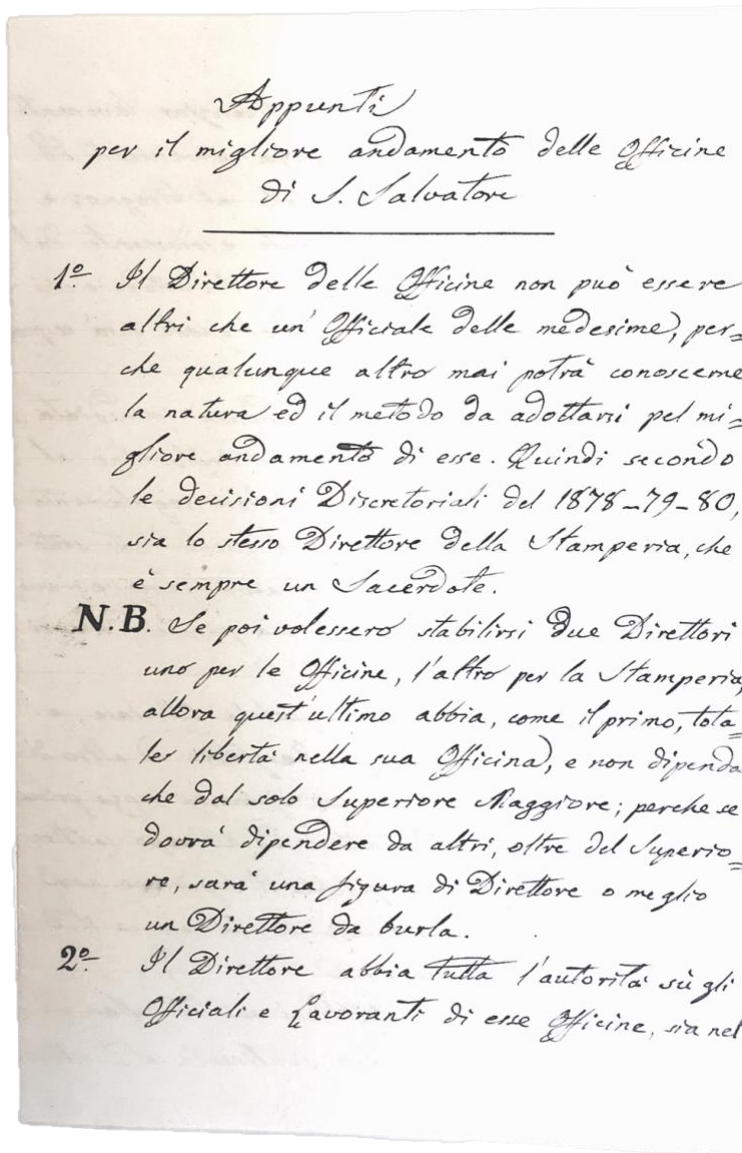 Appunti
per il migliore andamento delle Officine
di S. Salvatore
1º Il Direttore delle Officine non può essere
altri che un' Officiale delle medesime, per=
che qualunque altro mai potrà conoscerne
la natura ed il metodo da adottarsi pel mi=
gliore andamento di esse. Quindi secondo
le decisioni Discretoriali del 1878-79-80,
sia lo stesso Direttore della Stamperia, che
è sempre un Sacerdote.
N.B. Se poi volessero stabilirsi due Direttori
uno per le Officine, l'altro per la Stamperia,
allora quest'ultimo abbia, come il primo, tota=
le libertà nella sua Officina, e non dipenda
che dal solo Superiore Maggiore; perche se
dovrà dipendere da altri, oltre del Superio=
re, sarà una figura di Direttore o meglio
un Direttore da burla.
2º Il Direttore abbia tutta l'autorità sù gli
Officiali e Lavoranti di esse Officine, sia nel